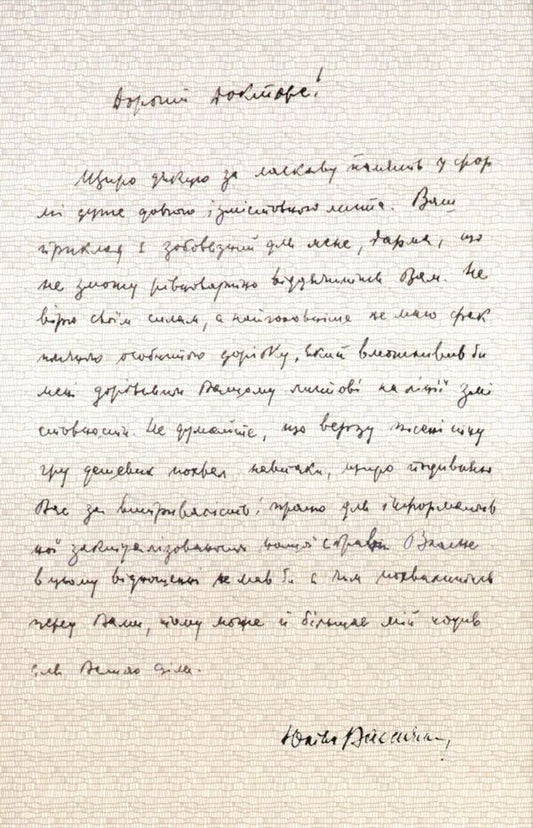 Дорогий Докторе!
Щиро дякую за ласкаву память у фор
мі дуже довгого і змістовного листа. Ваш
приклад є зобовязуючий для мене, дарма, що
не зможу рівновартно віддячитись Вам. Не
вірю своїм силам, а найголовніше не маю фак
тичного особистого дорібку, який вможливив би
мені дорівняти Вашому листові на лінії змі
стовности. Не думайте, що верзу
гру дешевих похвал, навпаки, щиро подивляю
Вас за витривалість і працю для
ної нашої справи. Власне
в цьому відношенні не мав би я чим похвалитись
перед Вами, тому може й більшає мій подив
для Вашого діла.